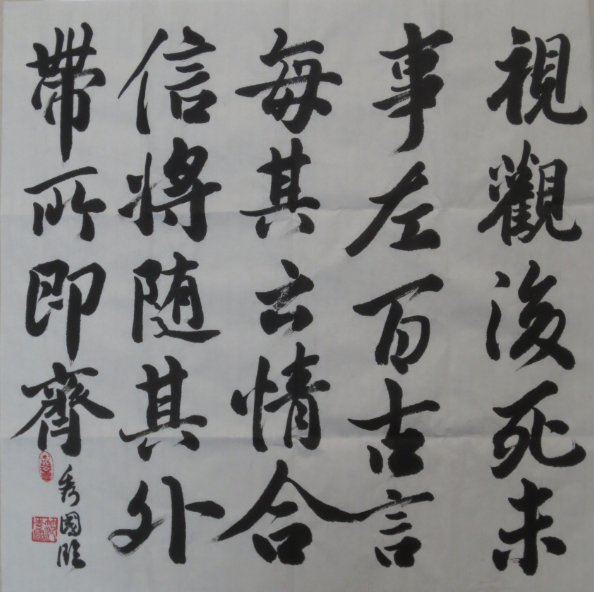 視觀後死未
事左百古言
每其云情合
信將随其外
帶所即齊
秀國臨